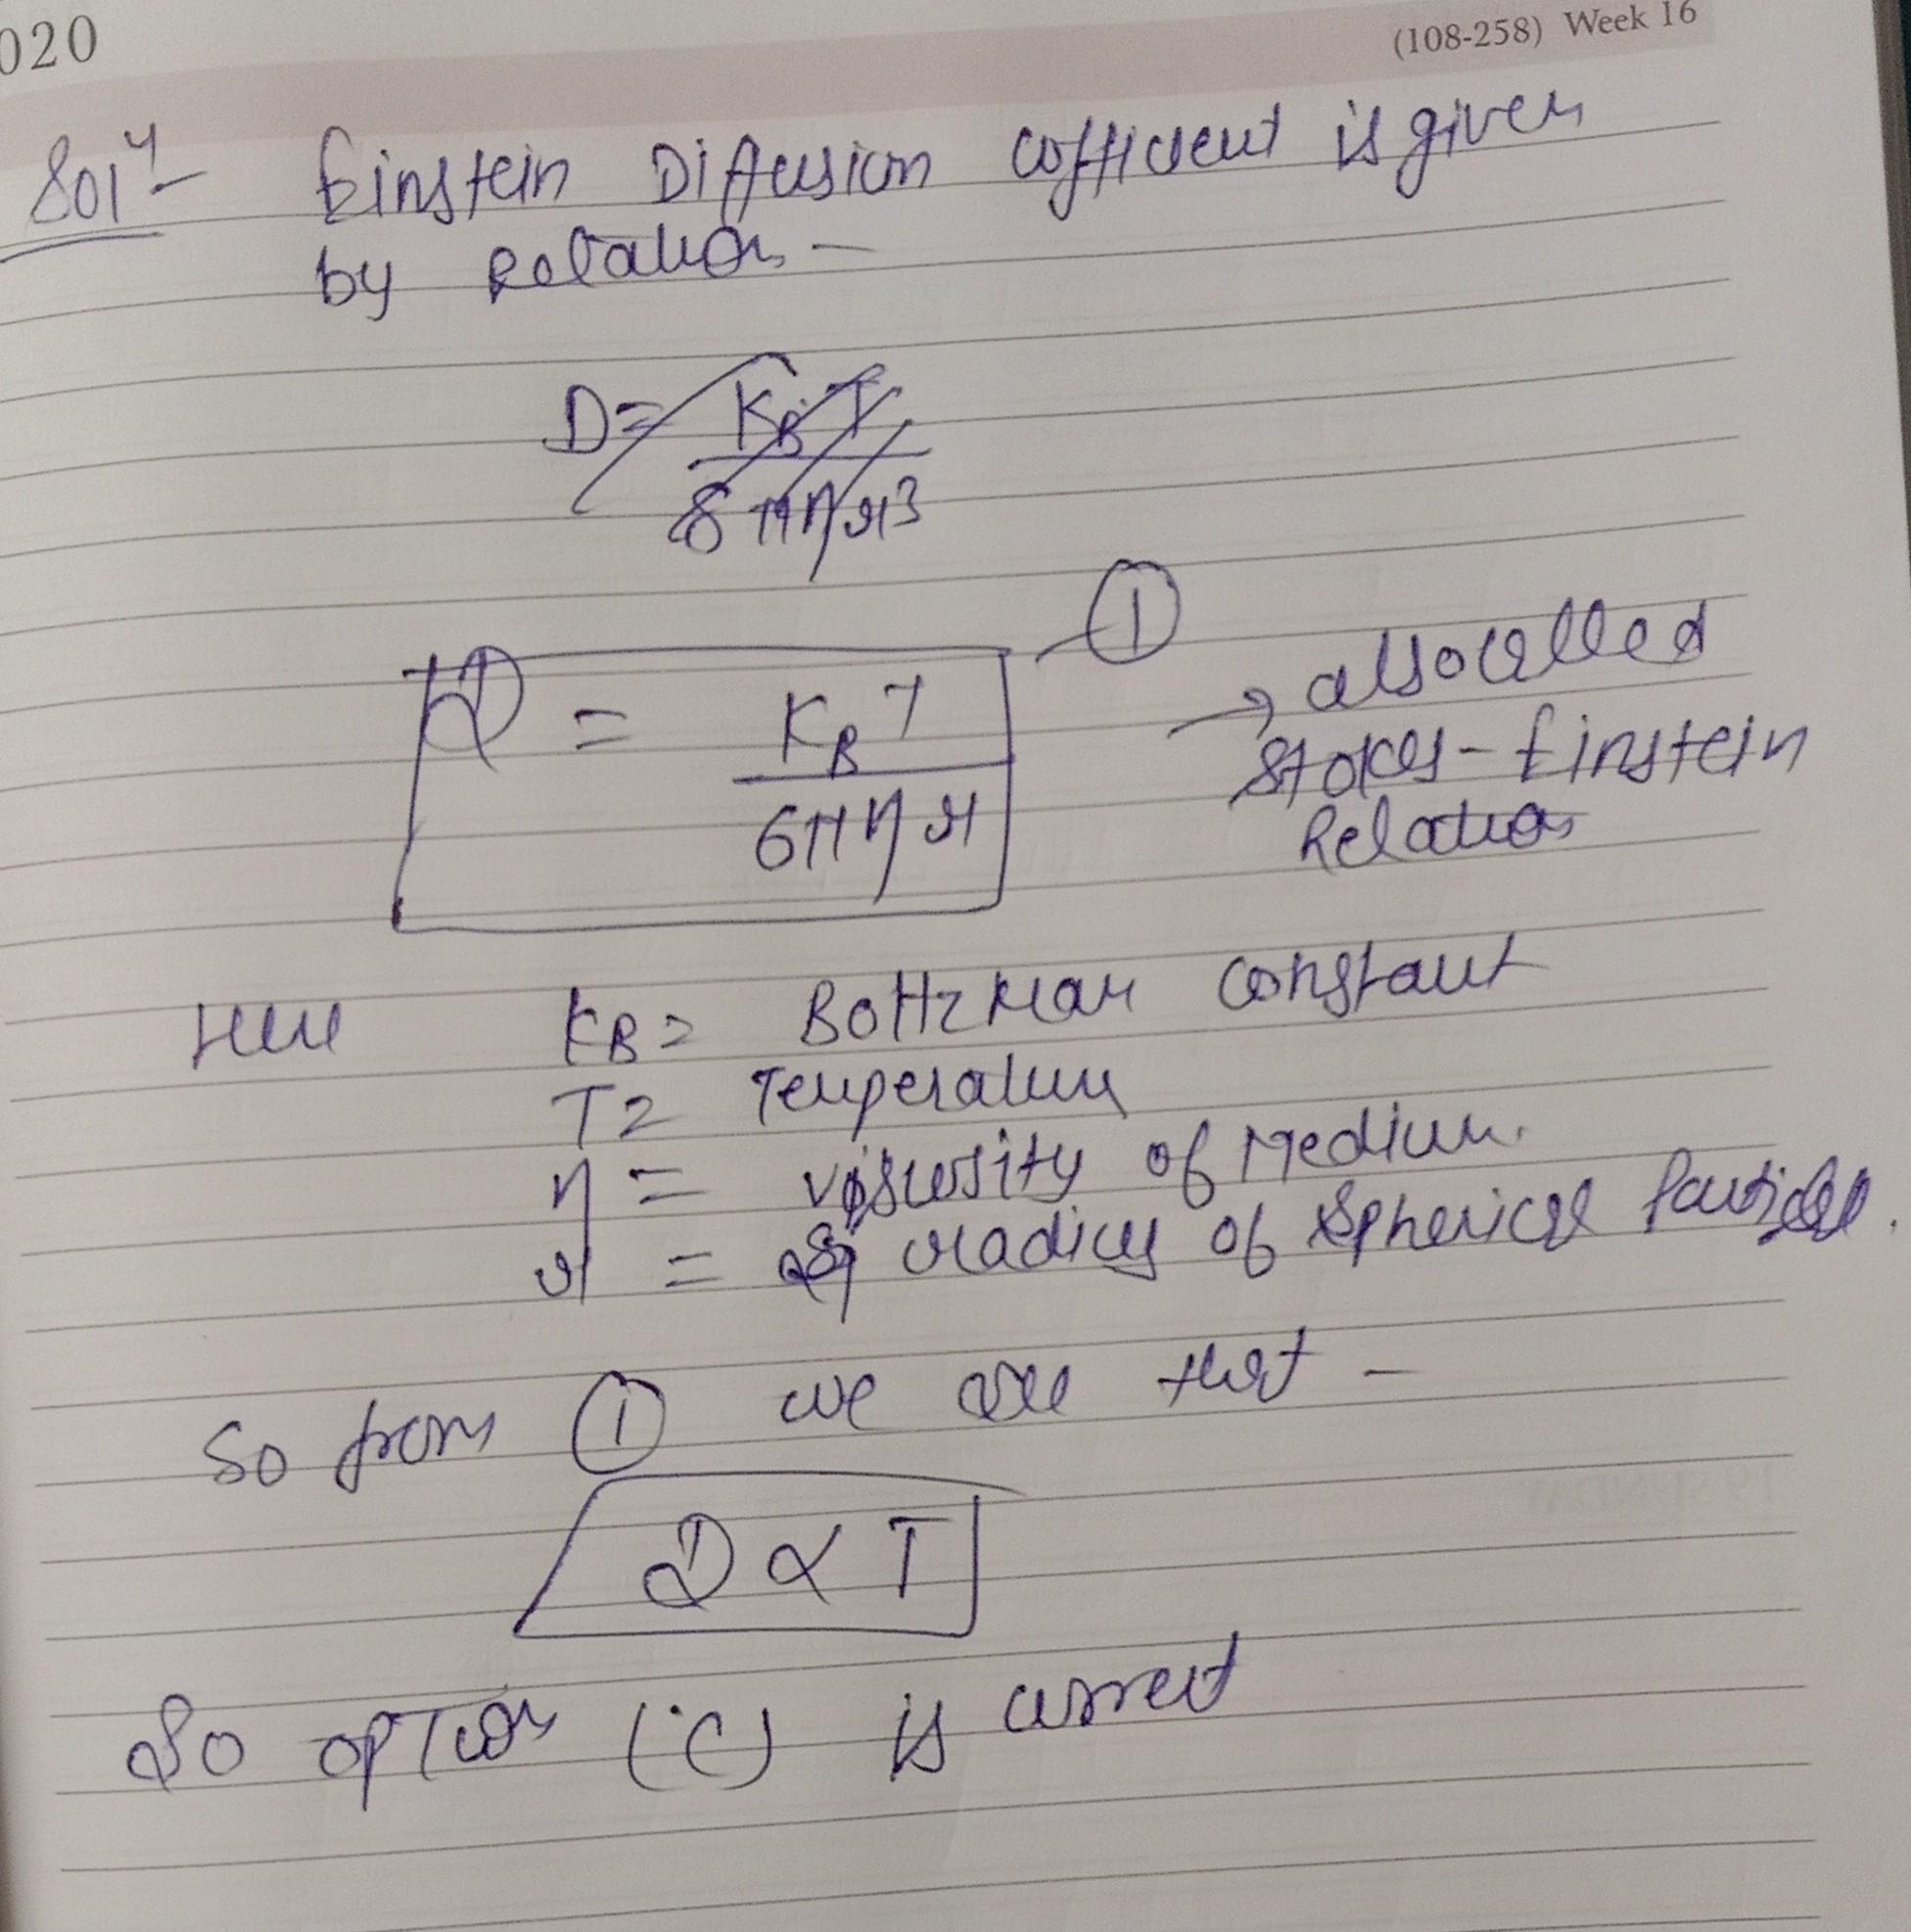 020
(108-258) Week 16
Soln- Einstein Diffusion cofficient is given
by Relation -
D= KBT
8πηr3
D = KBT
6πηr
1
→ also called
Stokes-Einstein
Relation
Here KB= Boltzman constant
T= Temperature
η = viscosity of Medium.
r = radius of Spherical Particle.
So from ① we see that -
D ∝ T
19 SUNDAY
So option (c) is correct